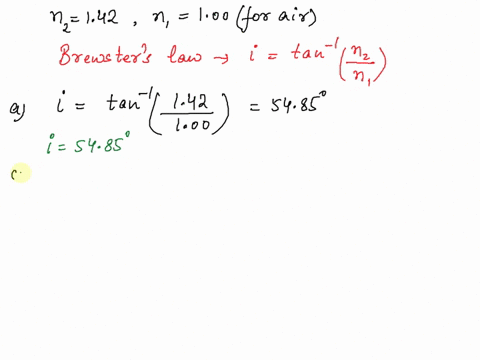 n₂ = 1.42 , n₁ = 1.00 (for air)
Brewster's law → i = tan⁻¹(n₂/n₁)
a) i = tan⁻¹(1.42/1.00) = 54.85°
i = 54.85°